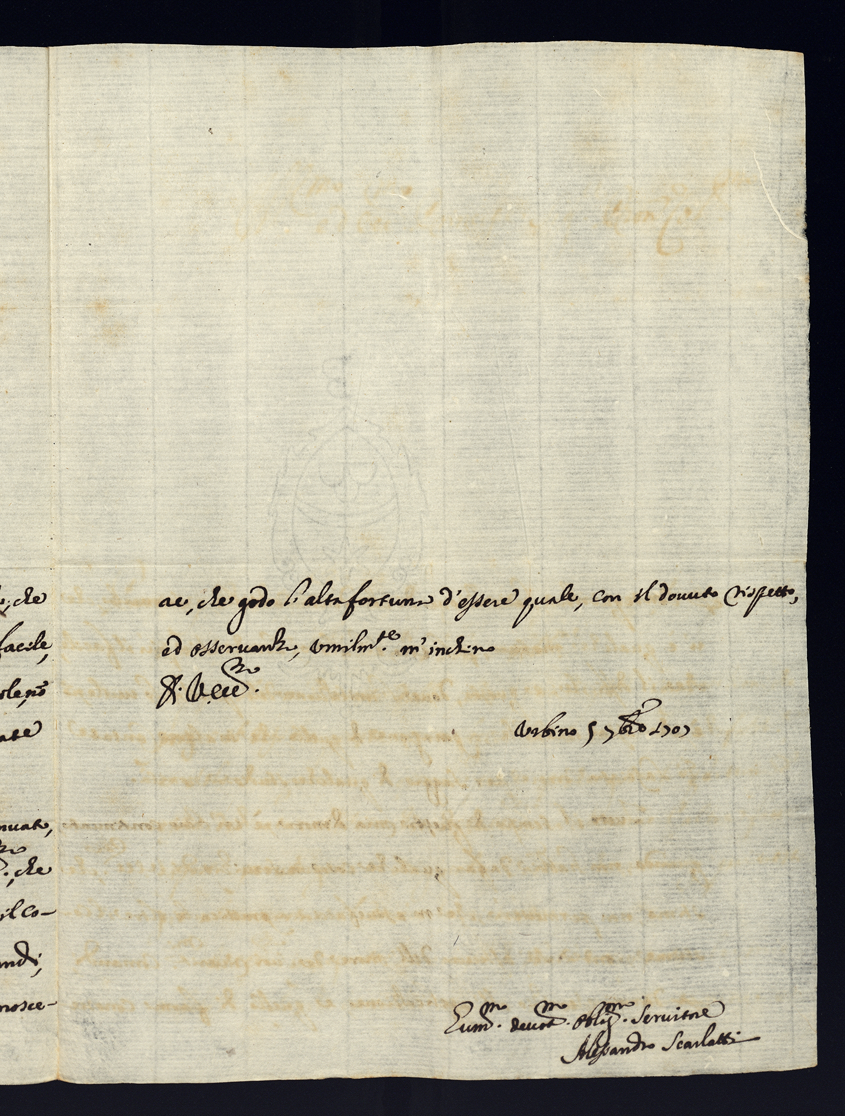 che
facile,
ate
nuate,
che
il co-
andi,
nosce-
ae, che godo l'alta fortuna d'essere quale, con il dovuto rispetto,
ed osservanza, umilm.te m'inchino
A. V. Ecc.
Urbino 5 7bre 1707
Hum.mo devot.mo oblig.mo Servitore
Alessandro Scarlatti